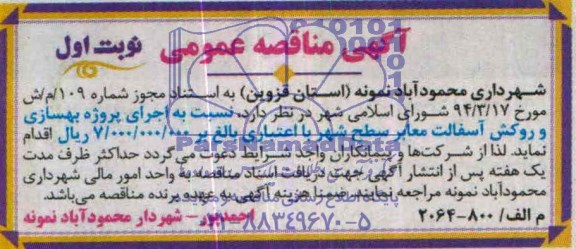 آگهی مناقصه عمومی
نوبت اول
شهرداری محمودآباد نمونه (استان قزوین) به استناد مجوز شماره ۱۰۹/م/ش
مورخ ۹۴/۳/۱۷ شورای اسلامی شهر در نظر دارد، نسبت به اجرای پروژه بهسازی
و روکش آسفالت معابر سطح شهر با اعتباری بالغ بر ۷/۰۰۰/۰۰۰/۰۰۰ ریال اقدام
نماید. لذا از شرکت‌ها و پیمانکاران واجد شرایط دعوت می‌گردد حداکثر ظرف مدت
یک هفته پس از انتشار آگهی جهت دریافت اسناد مناقصه به واحد امور مالی شهرداری
محمودآباد نمونه مراجعه نمایند. ضمنا هزینه آگهی به عهده برنده مناقصه می‌باشد.
م الف/ ۸۰۰-۲۰۶۴
احمدپور - شهردار محمودآباد نمونه
ParsNamadData
۸۸۳۴۹۶۷۰-۵